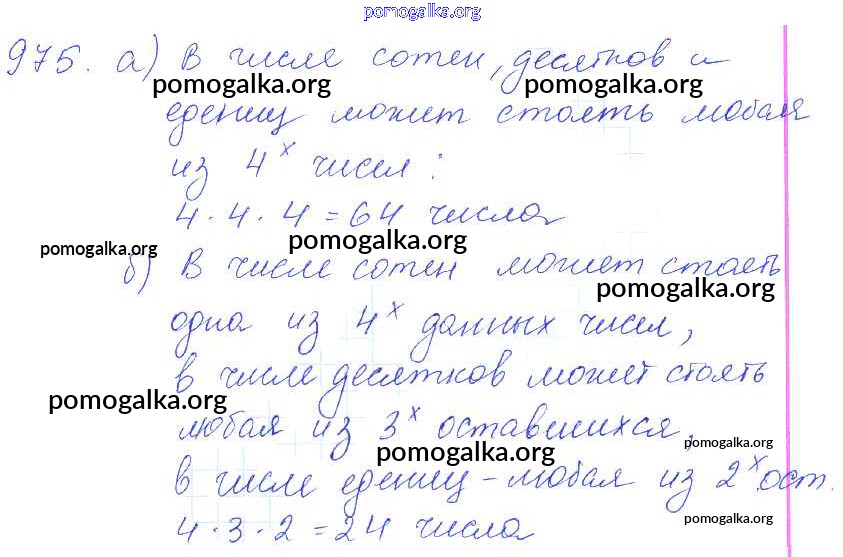 pomogalka.org
975. а) В числе сотен, десятков и
pomogalka.org pomogalka.org
едениц может стоять любая
из 4х чисел:
4·4·4=64 числа
pomogalka.org pomogalka.org
б) В числе сотен может стоять
pomogalka.org
одна из 4х данных чисел,
в числе десятков может стоять
pomogalka.org
любая из 3х оставшихся,
pomogalka.org pomogalka.org
в числе едениц - любая из 2х ост.
4·3·2=24 числа
pomogalka.org